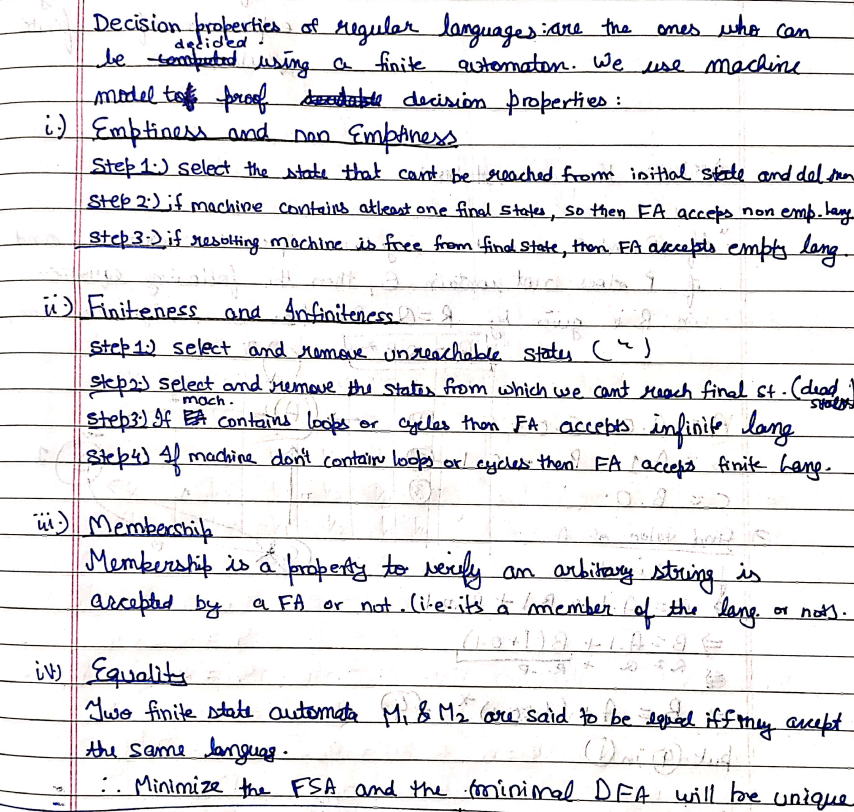 Decision properties of regular languages: are the ones who can
decided
be computed using a finite automaton. We use machine
model to proof decision properties :
i:) Emptiness and non Emptiness
Step 1:) Select the state that cant be reached from initial state and del them
Step 2:) if machine contains atleast one final states, so then FA acceps non emp. lang
Step 3:) if resolting machine is free from final state, then FA accepts empty lang.
ii:) Finiteness and Infiniteness
Step 1:) select and remove unreachable states ( " )
Step 2:) select and remove the states from which we cant reach final st. (dead states)
mach.
Step 3:) If FA contains loops or cycles then FA accepts infinite lang
Step 4:) If machine don't contain loops or cycles then FA acceps finite Lang.
iii:) Membership
Membership is a property to verify an arbitary string is
accepted by a FA or not. (i.e. its a member of the lang. or not).
iv) Equality
Two finite state automata M1 & M2 are said to be equal iff they accept
the same languag.
∴ Minimize the FSA and the minimal DFA will be unique